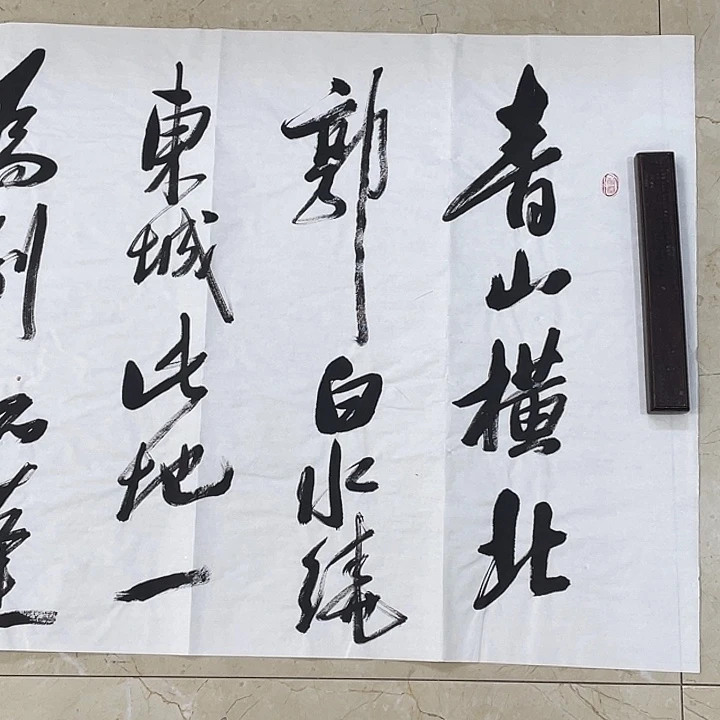 青山橫北
郭白水繞
東城此地一
為別